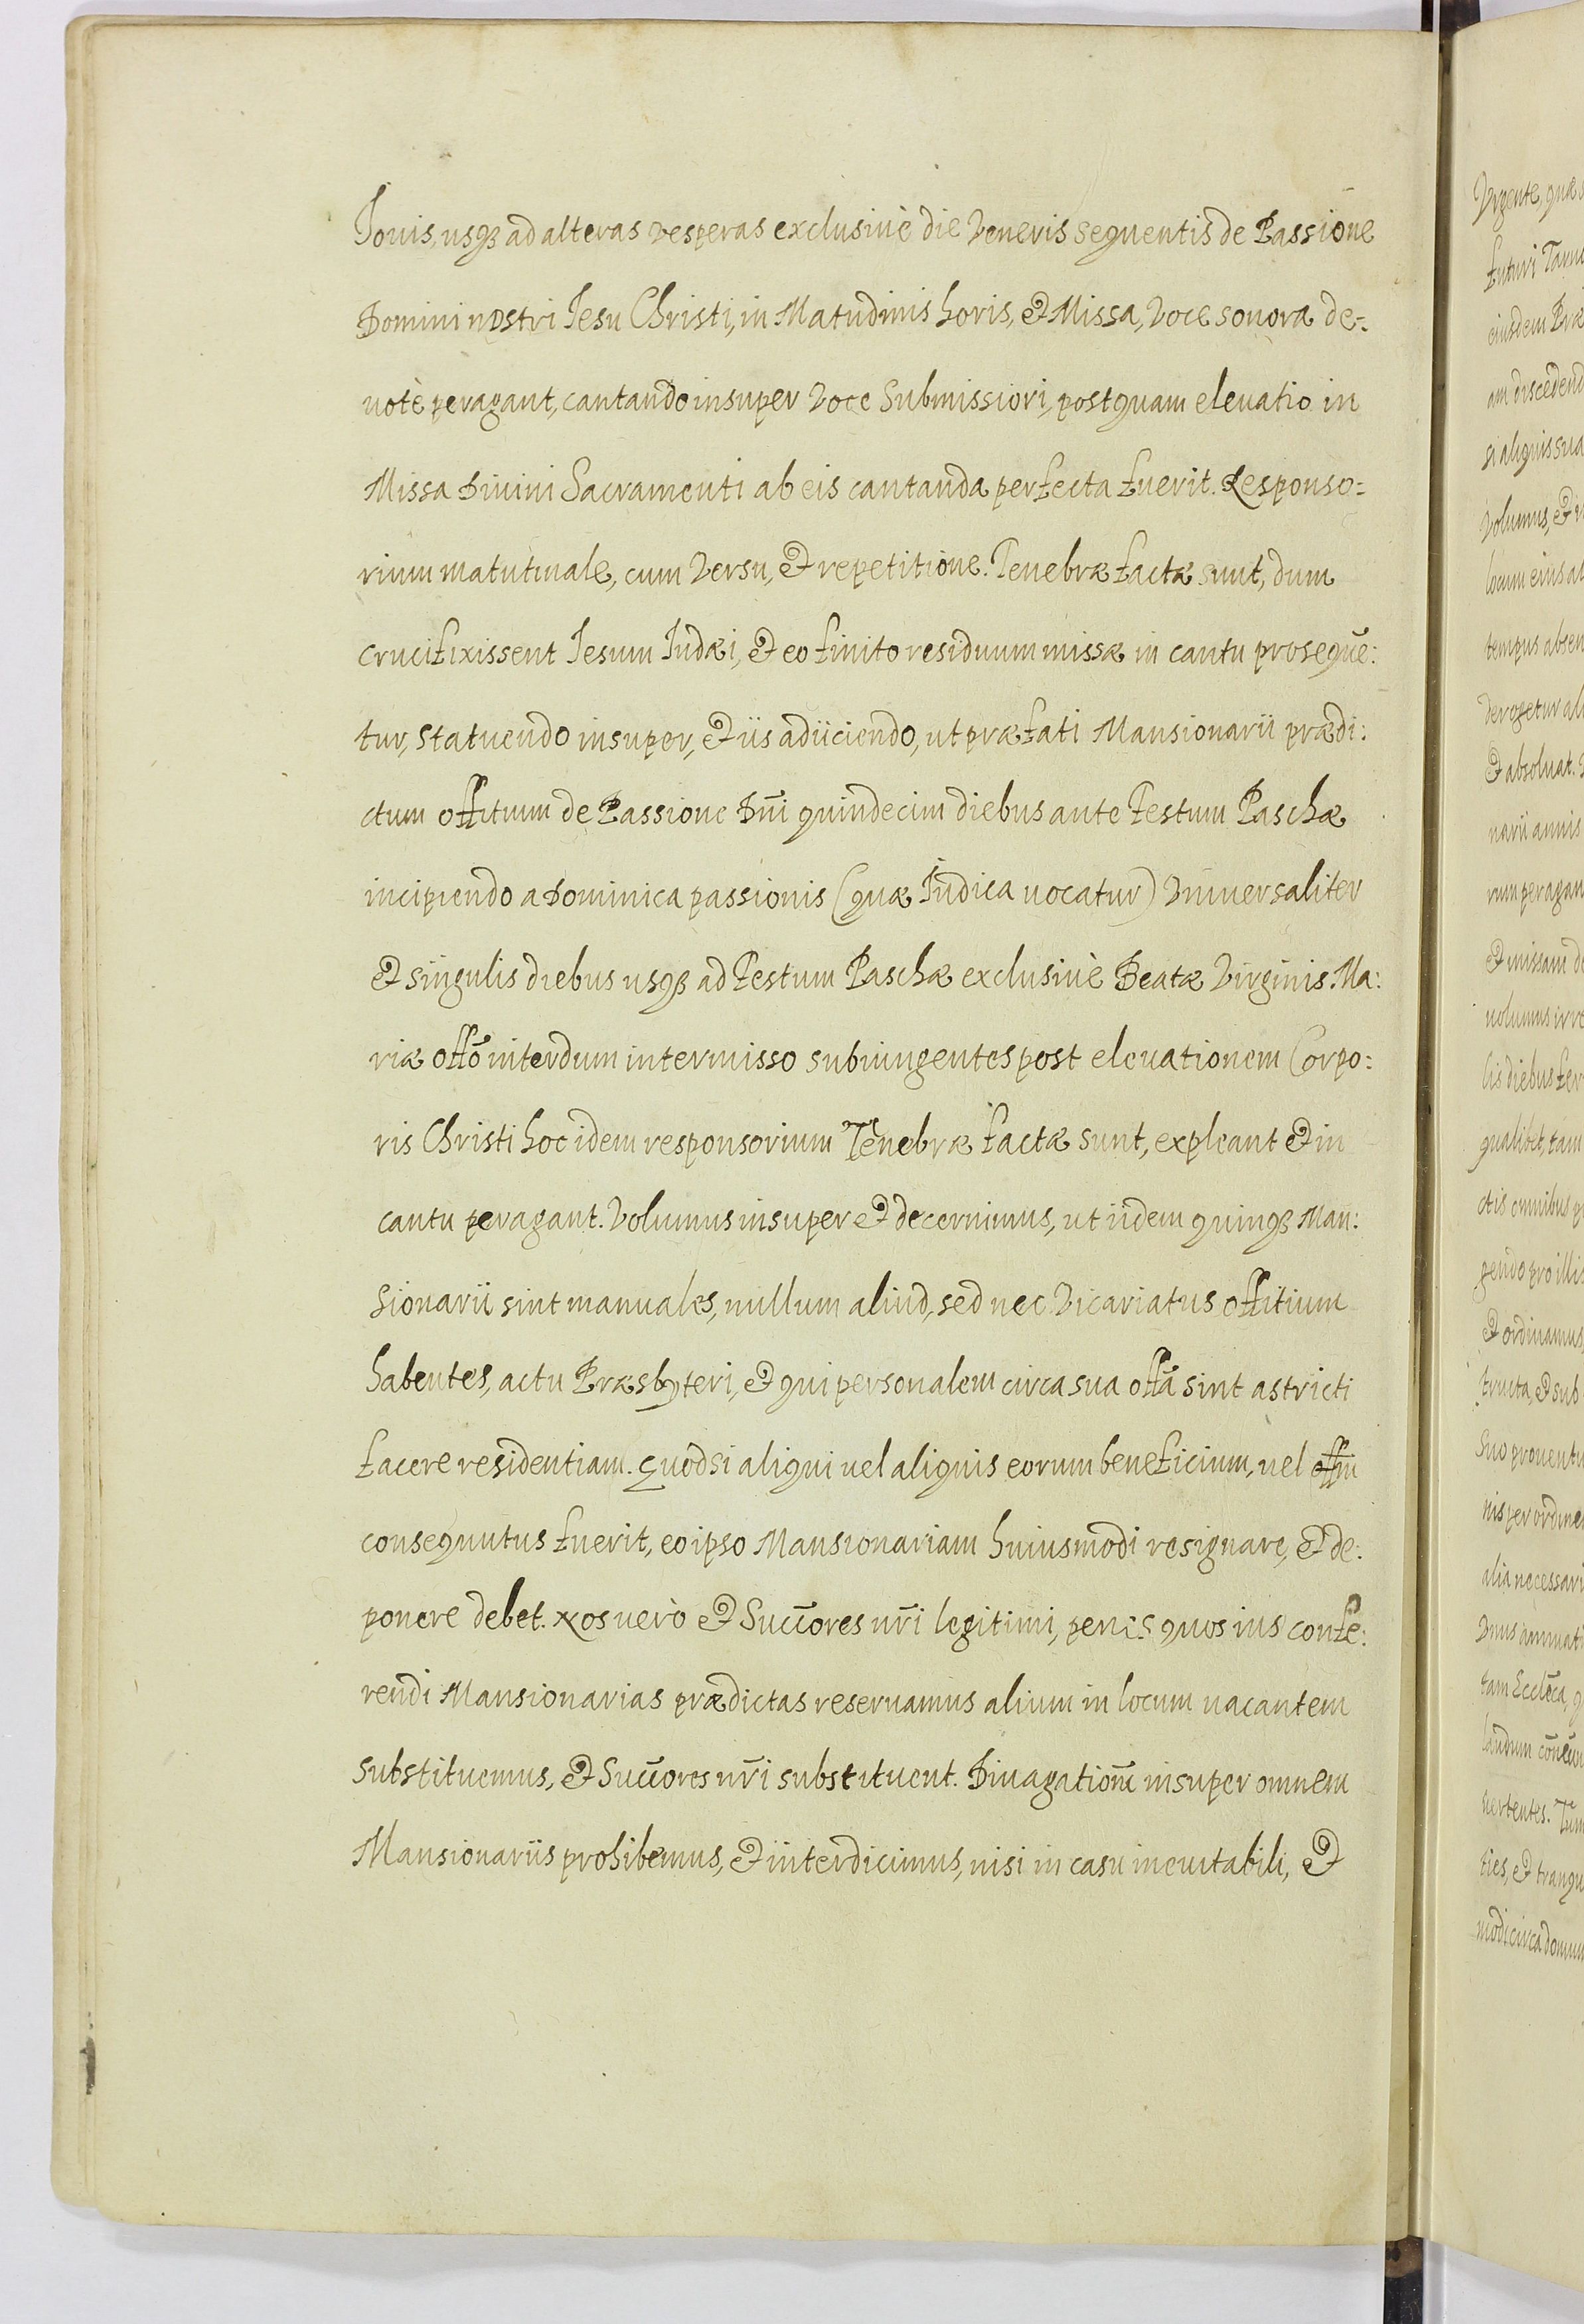 Iouis, usqꝫ ad alteras vesperas exclusiuè die Veneris sequentis de Passione
Domini nostri Iesu Christi, in Matudinis horis, & Missa, Voce sonora de-
uotè peragant, cantando insuper Voce Submissiori, postquam eleuatio in
Missa Diuini Sacramenti ab eis cantanda perfecta fuerit. Responso:
rium matutinale, cum Versu, & repetitione. Tenebræ factæ sunt, dum
crucifixissent Iesum Iudæi, & eo finito residuum missæ in cantu prosequē:
tur, statuendo insuper, & iis adiiciendo, ut præfati Mansionarii prædi:
ctum offitium de Passione Dn̄i quindecim diebus ante Festum Paschæ
incipiendo a Dominica passionis (quæ Iudica uocatur) Vniuersaliter
& singulis diebus usqꝫ ad Festum Paschæ exclusiuè Beatæ Virginis Ma:
riæ offō interdum intermisso subiungentes post eleuationem Corpo:
ris Christi hoc idem responsorium Tenebræ factæ sunt, expleant & in
cantu peragant. Volumus insuper & decernimus, ut iidem quinqꝫ Man:
sionarii sint manuales, nullum aliud, sed nec Vicariatus offitium
habentes, actu Præsbyteri, & qui personalem circa sua offā sint astricti
facere residentiam. Quodsi aliqui uel aliquis eorum beneficium, uel offm̄
consequutus fuerit, eo ipso Mansionariam huiusmodi resignare, & de:
ponere debet. Nos uerò & Succ̄ores nr̄i legitimi, penes quos ius confe:
rendi Mansionarias prædictas reseruamus alium in locum uacantem
substituemus, & Succ̄ores nr̄i substituent. Diuagationē insuper omnem
Mansionariis prohibemus, & interdicimus, nisi in casu ineuitabili, &